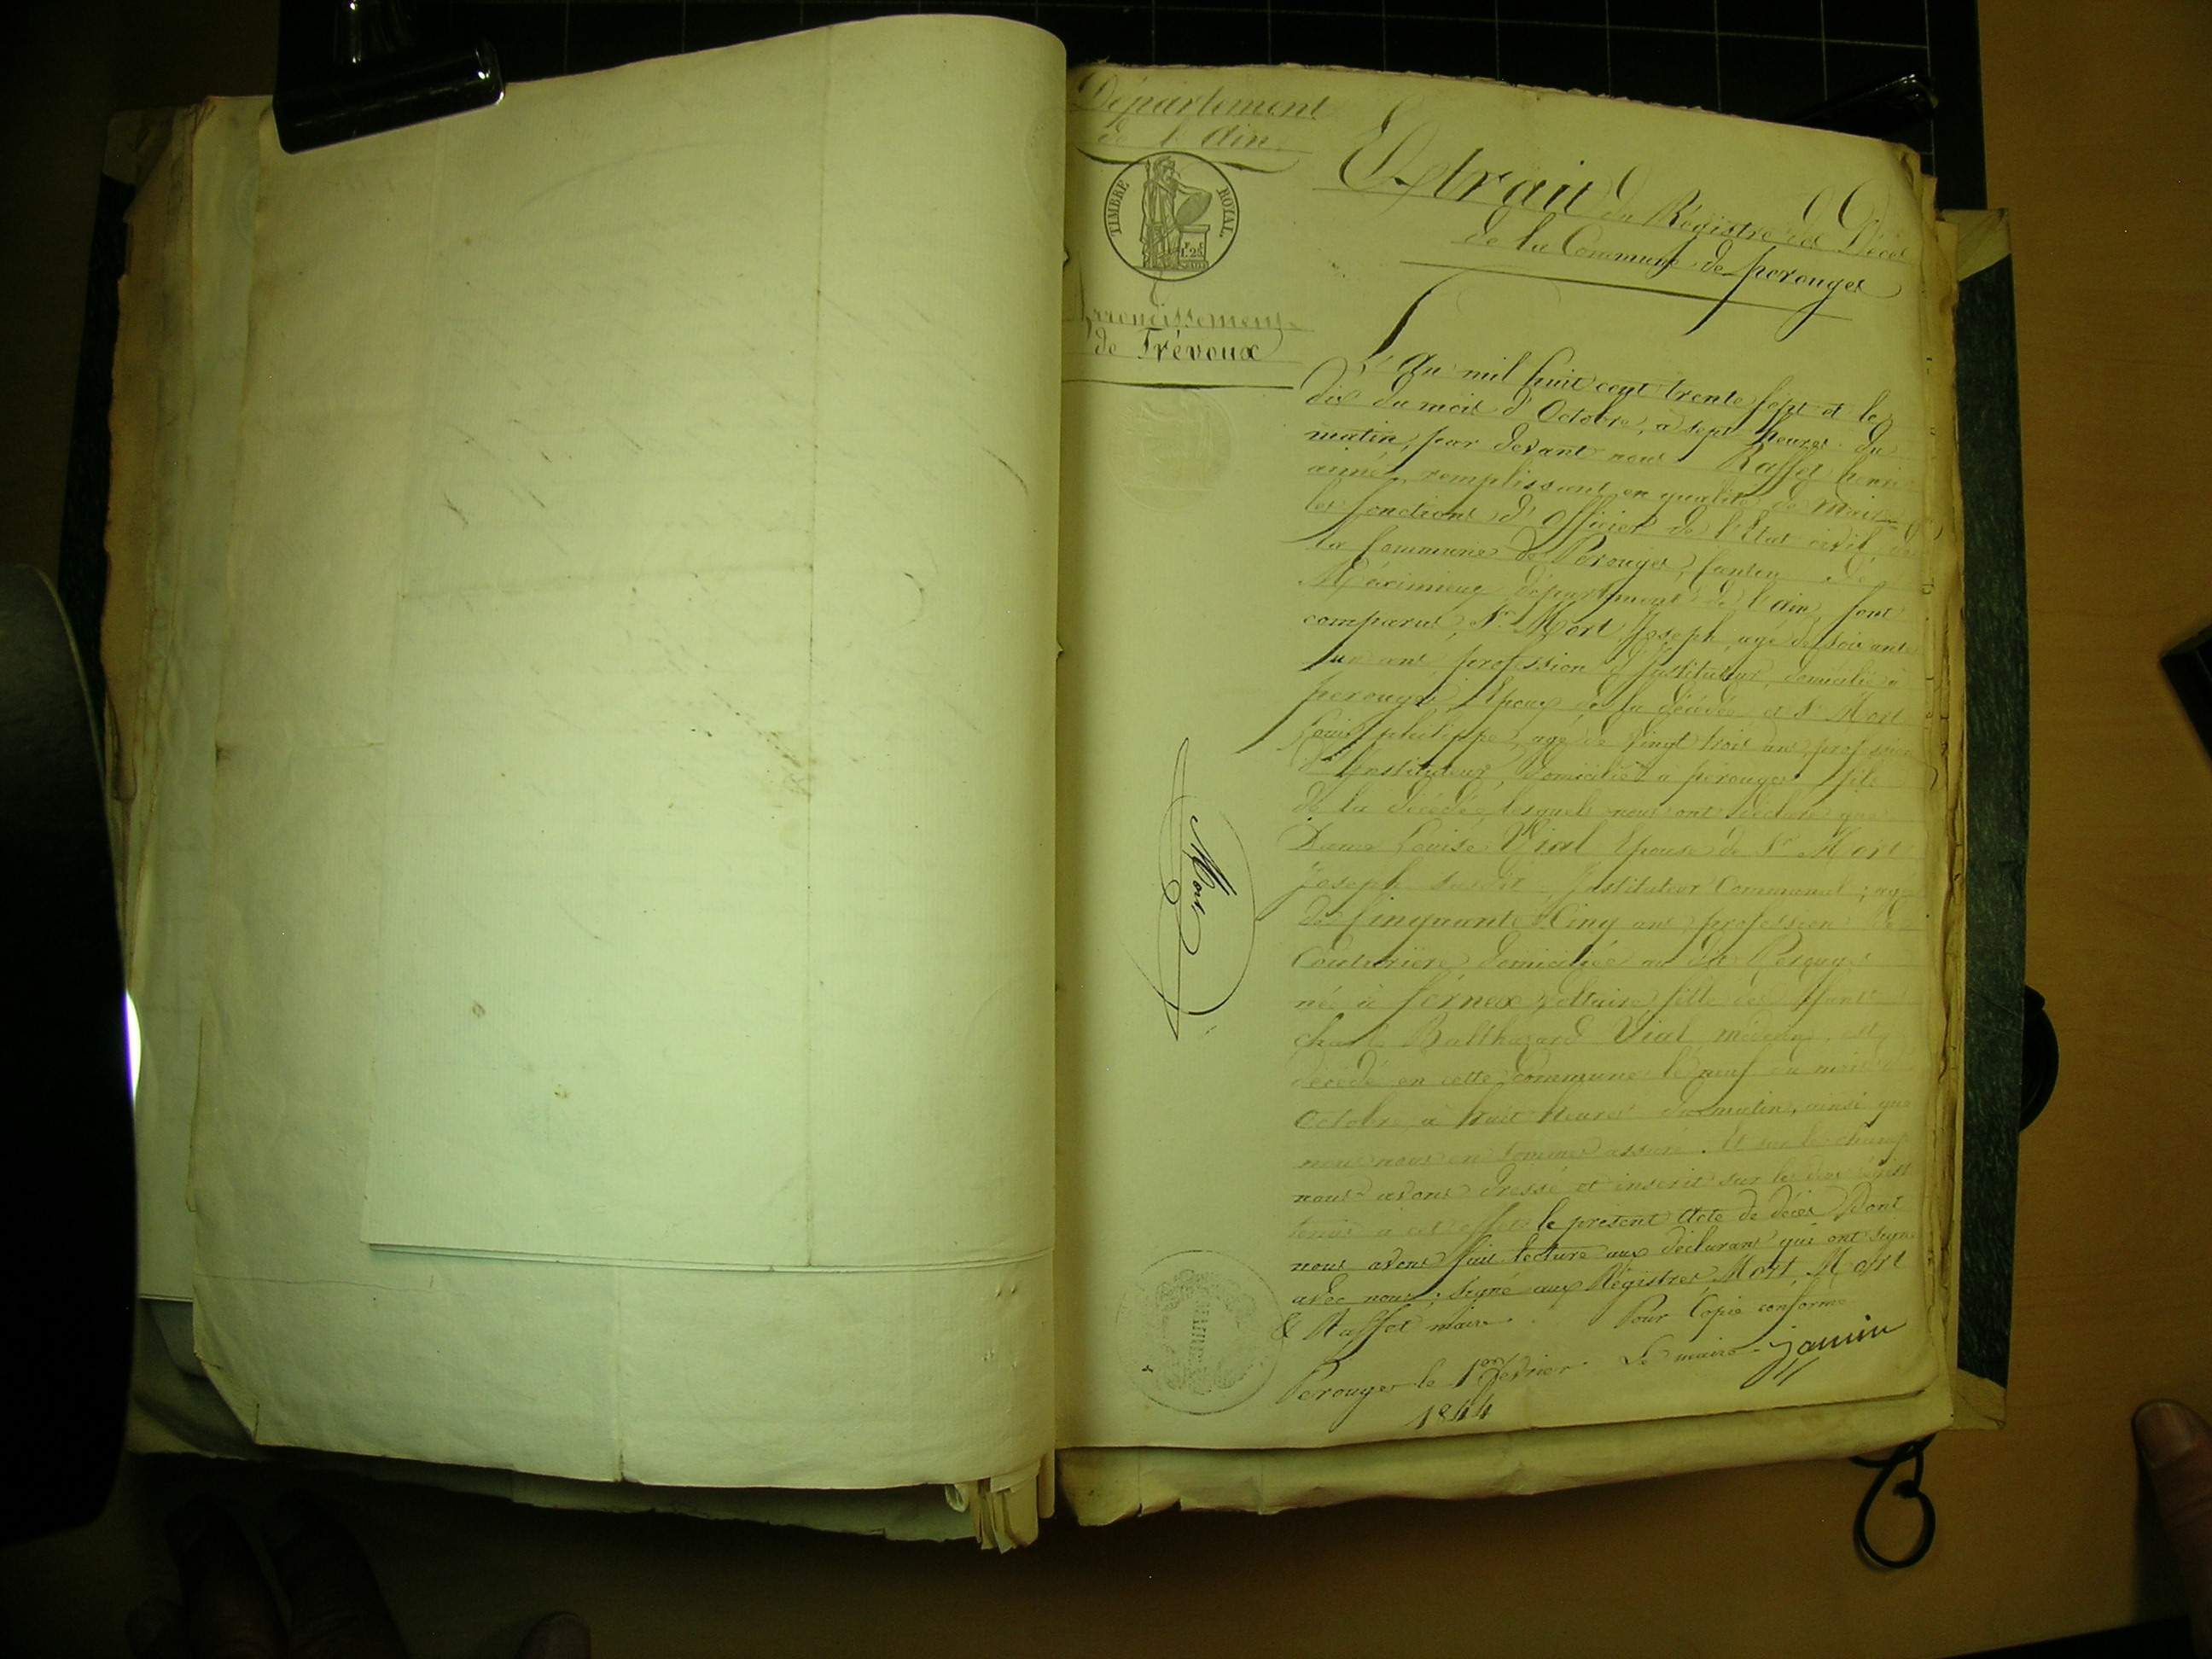 Département
de l'Ain
TIMBRE ROYAL
1.25
Arrondissement
de Trévoux
Extrait du Régistre des Décès
de la Commune de perouges
L'An mil huit cent trente sept et le
dix du mois d'Octobre, a sept heures du
matin, par devant nous Raffet henri
aimé remplissant en qualité de Maire
les fonctions d'Officier de l'État civil de
la Commune de Perouges, Canton de
Meximieux département de l'ain, sont
comparus, Sr Mort Joseph, agé de soixante
un ans, profession d'Instituteur, domicilié à
perouges, Epoux de la décédée et Sr Mort
Louis philippe, agé de vingt trois ans, profession
d'Instituteur, domicilié à perouges fils
de la décédée lesquels nous ont déclaré que
Dame Louise Vial Epouse de Sr Mort
Joseph susdit Instituteur Communal; agée
de Cinquante Cinq ans profession de
Couturière, domiciliée au dit Perouges
née à fernex voltaire, fille de
Balthazard Vial médecin, est
décédé en cette commune le neuf du mois
Octobre à huit heures du matin, ainsi que
nous nous en sommes assuré. Et sur le champ
nous avons dressé et inscrit sur les deux
tenus à cet effet le présent Acte de décès Dont
nous avons fait lecture aux déclarans qui ont signé
avec nous; signé aux Régistres Mort, Mort
& Raffet maire. Pour Copie conforme
Perouges le 1er février Le maire jamin
1844
Mort
MAIRIE